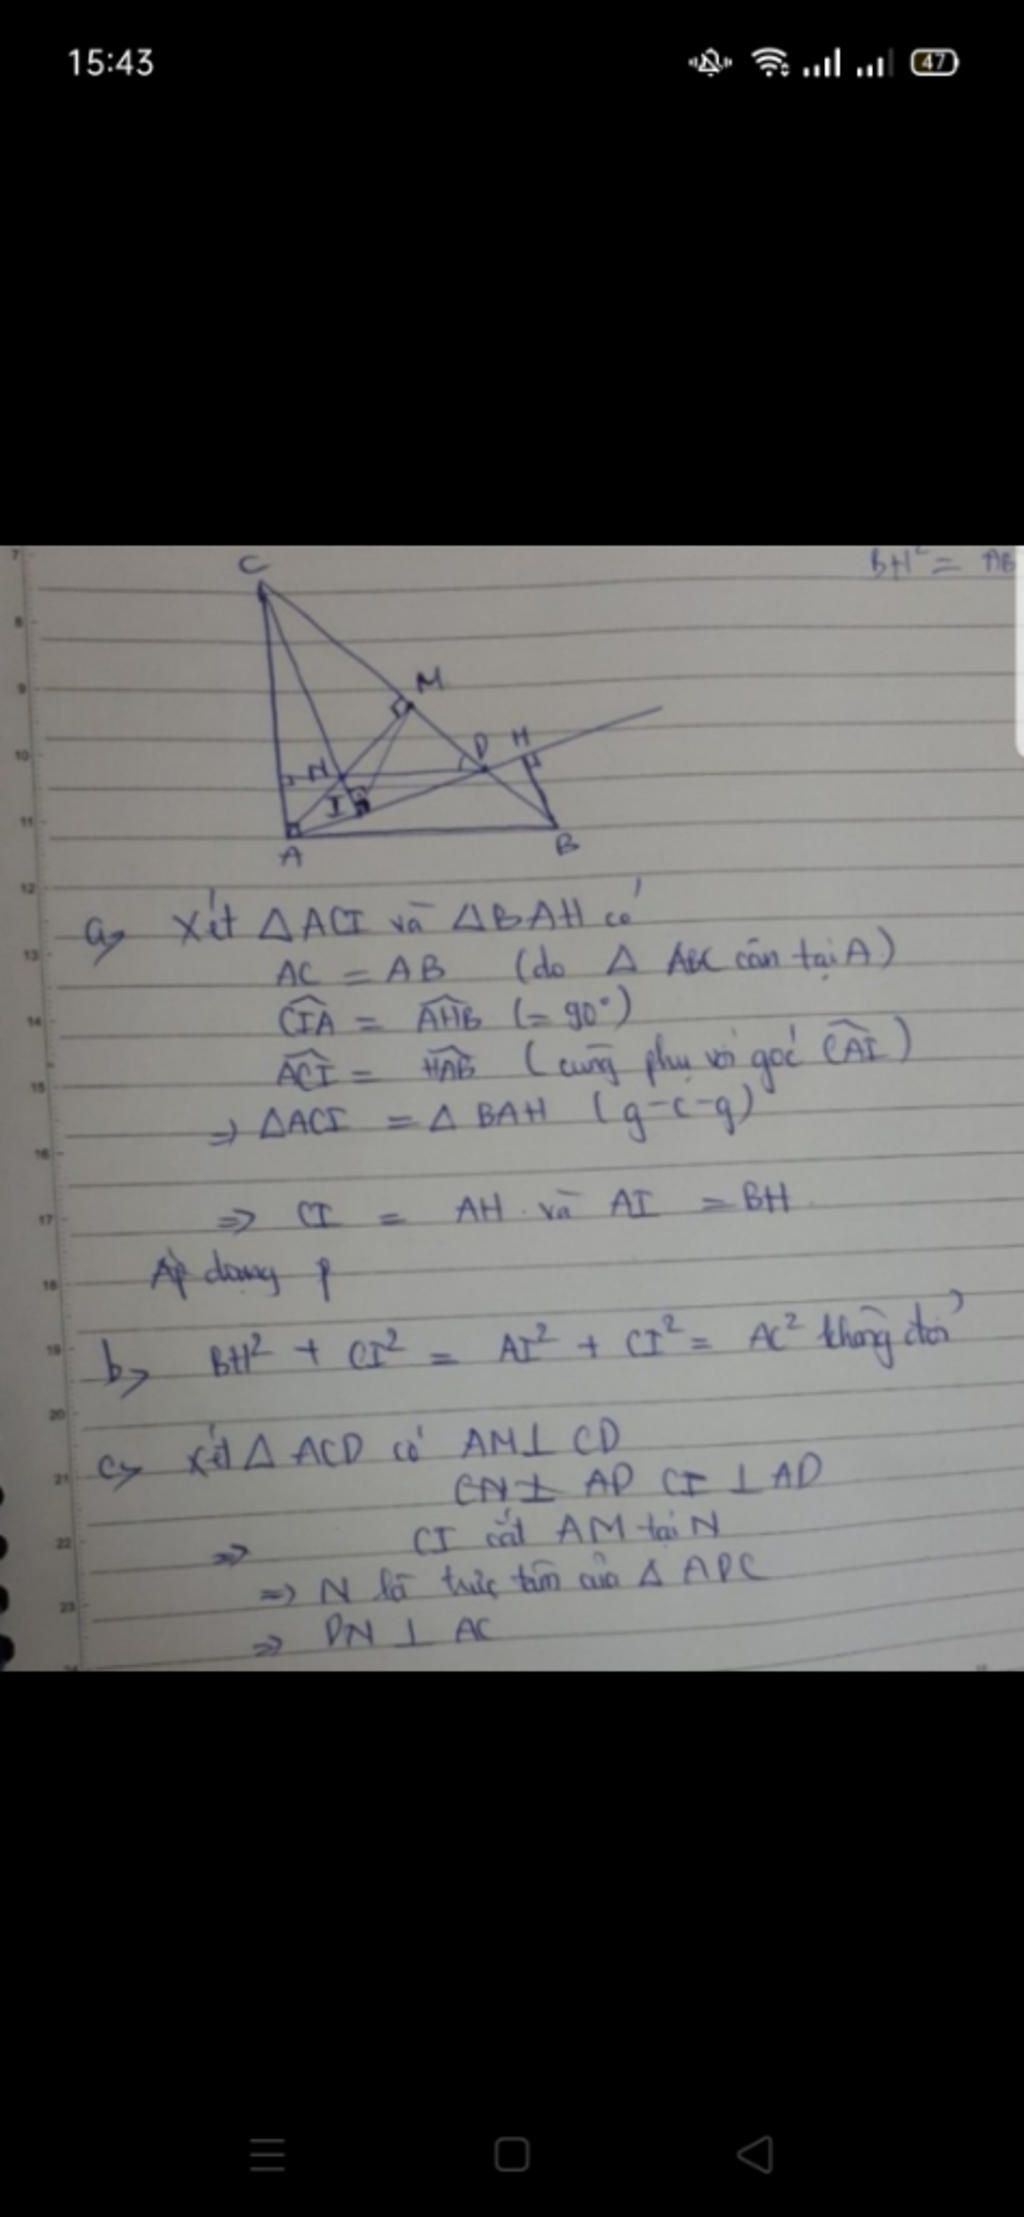 15:43
47
BH² = AB
C
M
D H
N
I
A
B
7
8
9
10
11
12
13
14
15
16
17
18
19
20
21
22
23
a, Xét ΔACI và ΔBAH có
AC = AB (do Δ ABC cân tại A)
CIA = AHB (= 90°)
ACI = HAB (cùng phụ với góc CAI)
⇒ ΔACI = Δ BAH (g-c-g)
⇒ CI = AH và AI = BH
Áp dụng p
b, BH² + CI² = AI² + CI² = AC² không đổi
c, Xét Δ ACD có AM ⊥ CD
CN ⊥ AD CI ⊥ AD
⇒ CI cắt AM tại N
⇒ N là trực tâm của Δ ADC
⇒ DN ⊥ AC